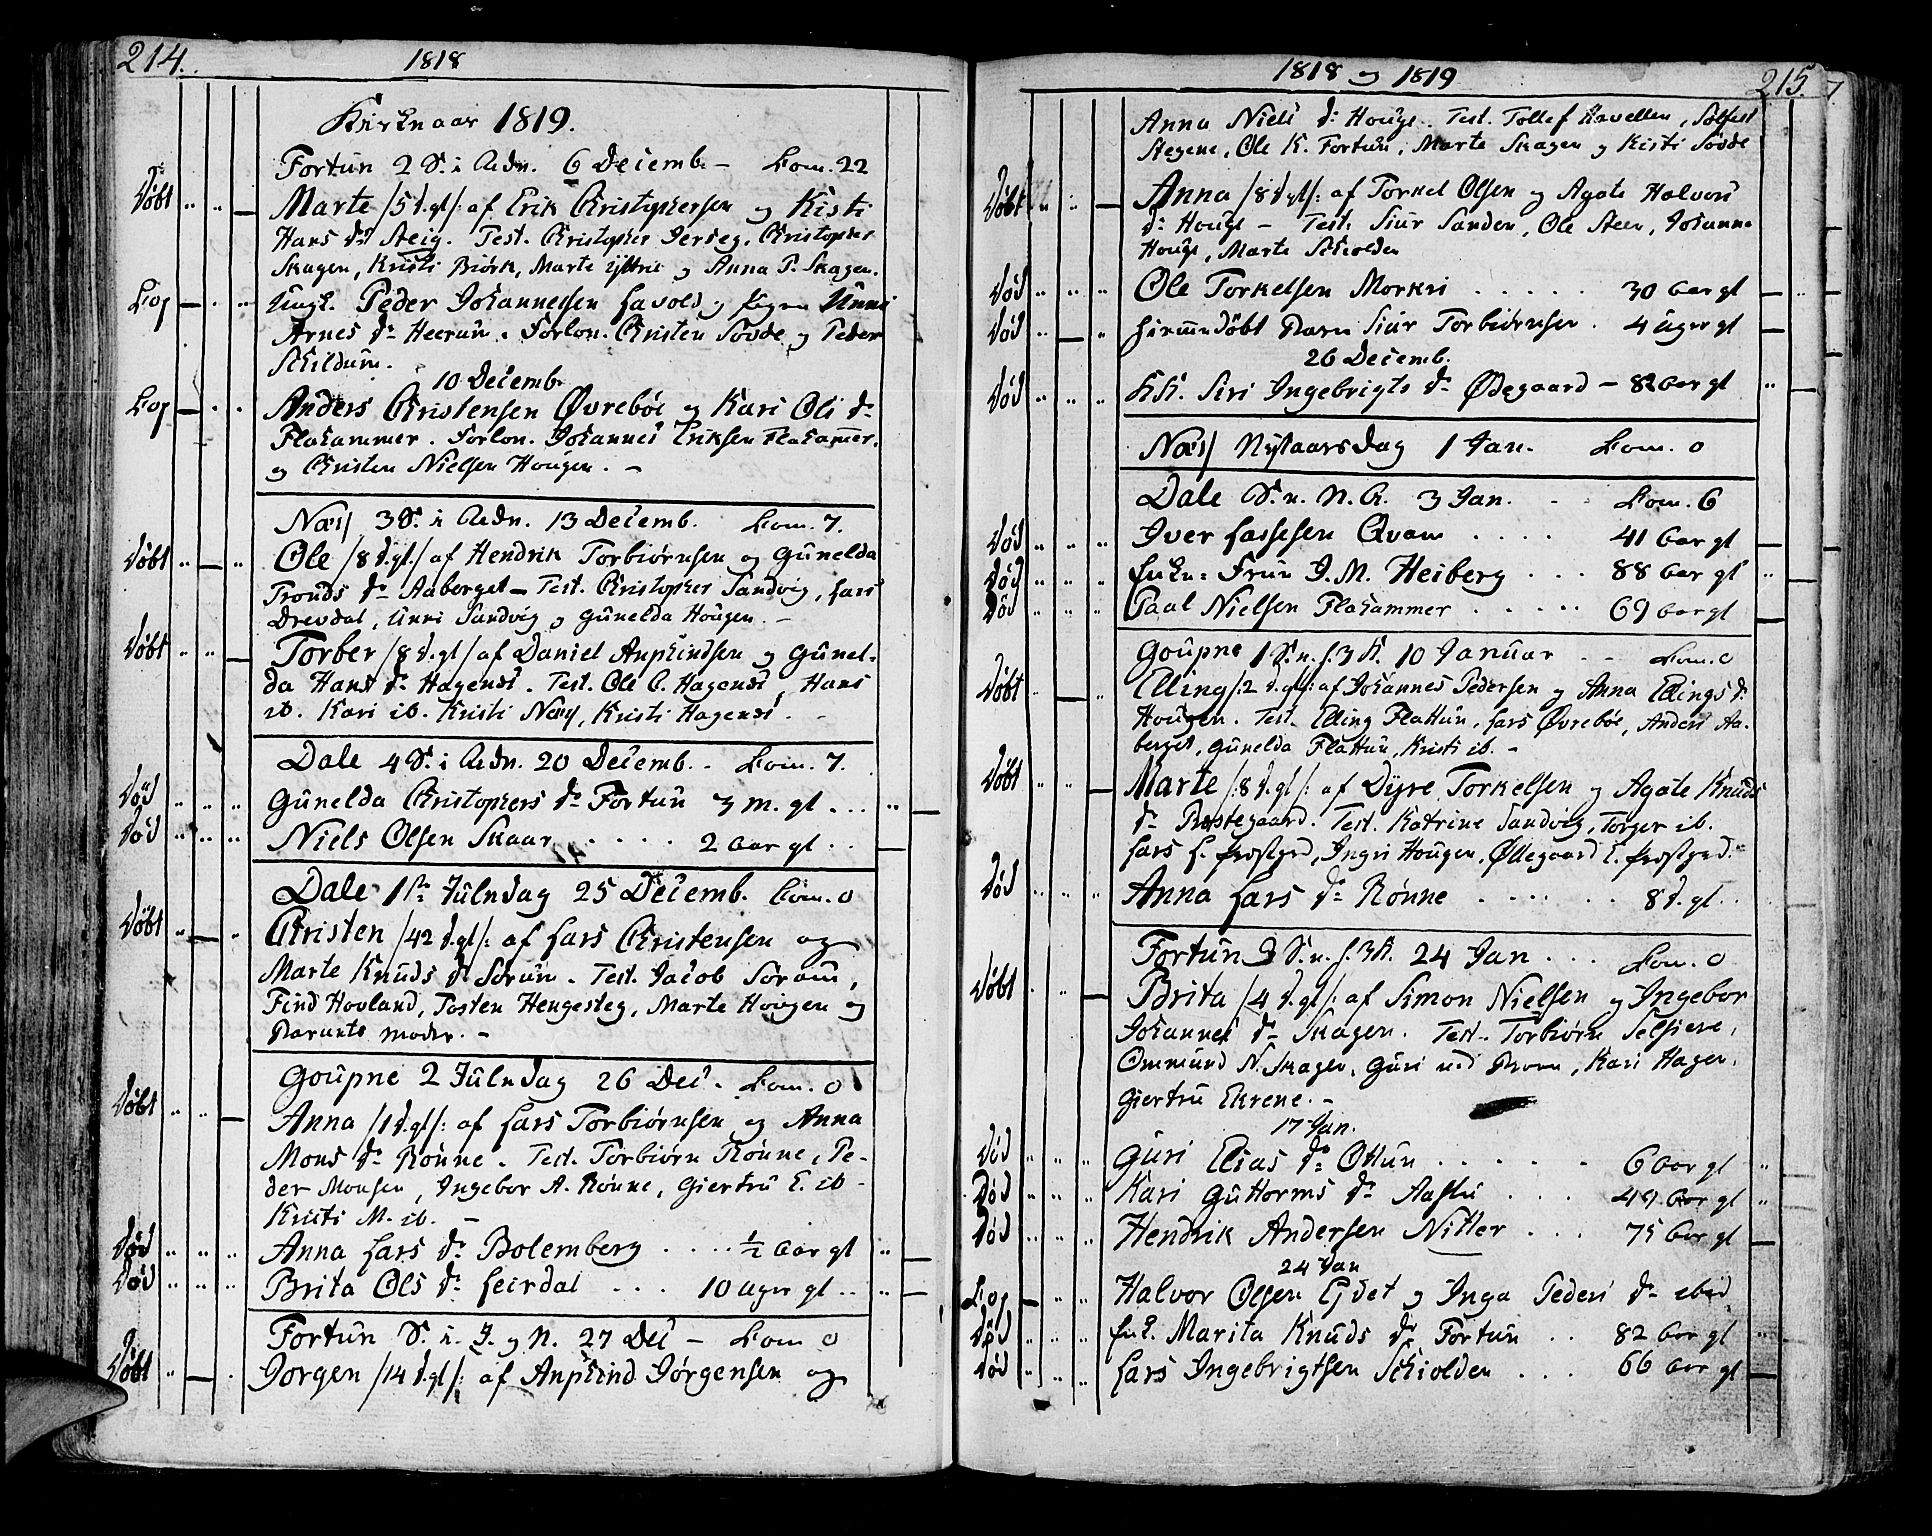 214.
1818
Kirkeaar 1819.
Fortun 2 S. i Adn. 6 Decemb. — Com. 22
Døbt Marte /5 d. gl/: af Erik Christophersen og Kisti
Hans dr Steig. Test. Christopher Jerseg, Christopher
Skagen, Kristi Biørk, Marte Yttrie og Anna P. Skagen.
Cop Ungk. Peder Johannessen Havold og Pigen Unni
Arnes dr Heerum. Forlov. Christen Sovde og Peder
Schildum.
10 Decemb.
Cop Anders Christensen Øvrebøe og Kari Ols dr
Flahammer. Forlov. Johannes Eriksen Flahamer.
og Christen Nielsen Hougen. —
Næss 3 S. i Adn. 13 Decemb. Com. 7.
Døbt Ole /8 d. gl./ af Hendrik Torbiørnsen og Gunelda
Tronds dr Aaberget — Test. Christopher Sandvig, Lars
Drevdal, Unni Sandvig og Gunelda Hougen. —
Døbt Torber /8 d. gl/ af Daniel Anphindsen og Gunel-
da Hans dr Hagenes. Test. Ole C. Hagenes, Hans
ib. Kari ib. Kristi Næss, Kristi Hagenes. -
Dale 4 S. i Adn. 20 Decemb. - Com. 7.
Død Gunelda Christophers dr Fortun 3 m. gl ...
Død Niels Olsen Skaar . . . . . 2 aar gl . .
Dale 1ste Juledag 25 Decemb. Com. 0
Døbt Christen /42 d. gl/: af Lars Christensen og
Marte Knuds dr Sørum. Test. Jacob Sørum,
Find Hovland, Tosten Hengesteg, Marte Hougen og
Barnets Moder. —
Goupne 2 Juledag 26 Dec. Com. 0
Døbt Anna /1 d. gl/: af Lars Torbiørnsen og Anna
Mons dr Rønne. Test. Torbiørn Rønne, Pe-
der Monsen, Ingebor A. Rønne, Giertru E. ib -
Kristi M. ib. —
Død Anna Lars dr Bolemberg . . . . ½ aar gl
Død Brita Ols dr Leirdal . . . 10 uger gl . .
Fortun S. i. J. og N. 27 Dec — Com 0
Døbt Jørgen /14 d. gl/: af Anphind Jørgensen og
1818 og 1819
215.
Anna Niels dr Houge. Test. Tollef Ørvellen, Solfest
Stegene, Ole K. Fortun, Marte Skagen og Kisti Sovde
Døbt Anna /8 d. gl/: af Torkel Olsen og Agate Halvors
dr Houge — Test. Siur Sanden, Ole Steen, Johanne
Houge, Marte Schiolden
Død Ole Torkelsen Morkri . . . . . 30 aar gl
Død Hiemmedøbt Barn Siur Torbiørnsen . 4 uger gl
26 Decemb.
Død Siri Ingebrigts dr Ødegaard — 82 aar gl
Næss Nytaarsdag 1 Jan. Com. 0
Dale S. n. N. A. 3 Jan. - - Com. 6
Død Iver Lassesen Qvam . . . . 41 aar gl
Død Enke- Fru J. M. Heiberg . . . 88 aar gl
Død Paal Nielsen Flahammer . . . . . 69 aar gl
Goupne 1 S. n. h. 3 K. 10 Januar - - Com. 0
Døbt Elling /:2 d. gl/: af Johannes Pedersen og Anna Ellings dr
Hougen. Test. Elling Flattun, Lars Øvrebøe, Anders Aa-
berget, Gunelda Flattun, Kristi ib. -
Døbt Marte /:8 d. gl/: af Dyre Torkelsen og Agate Knuds
dr Prestegaard. Test. Katrine Sandvig, Torger ib.
Lars L. Prestgrd, Ingri Hougen, Øllegaard E. Prestgrd.
Død Anna Lars dr Rønne . . . . . 8 d. gl . .
Fortun 3 S. n. h. 3 K. 24 Jan . . . Com. 0
Døbt Brita /4 d. gl/: af Simon Nielsen og Ingebor
Johannes dr Skagen. Test. Torbiørn Selsiere,
Ommund N. Skagen, Guri Kari Hagen,
Giertru Ekrene. —
17 Jan.
Død Guri Elias dr Ottun . . . . . 6 aar gl
Død Kari Guttorms dr . . . 49 aar gl
Død Hendrik Andersen Nitter . . . 75 aar gl
24 Jan
Cop Halvor Olsen Eidet og Inga Peders dr ibid
Død Enk. Marita Knuds dr Fortun . . 82 aar gl
Død Lars Ingebrigtsen Schiolden . . . 66 aar gl